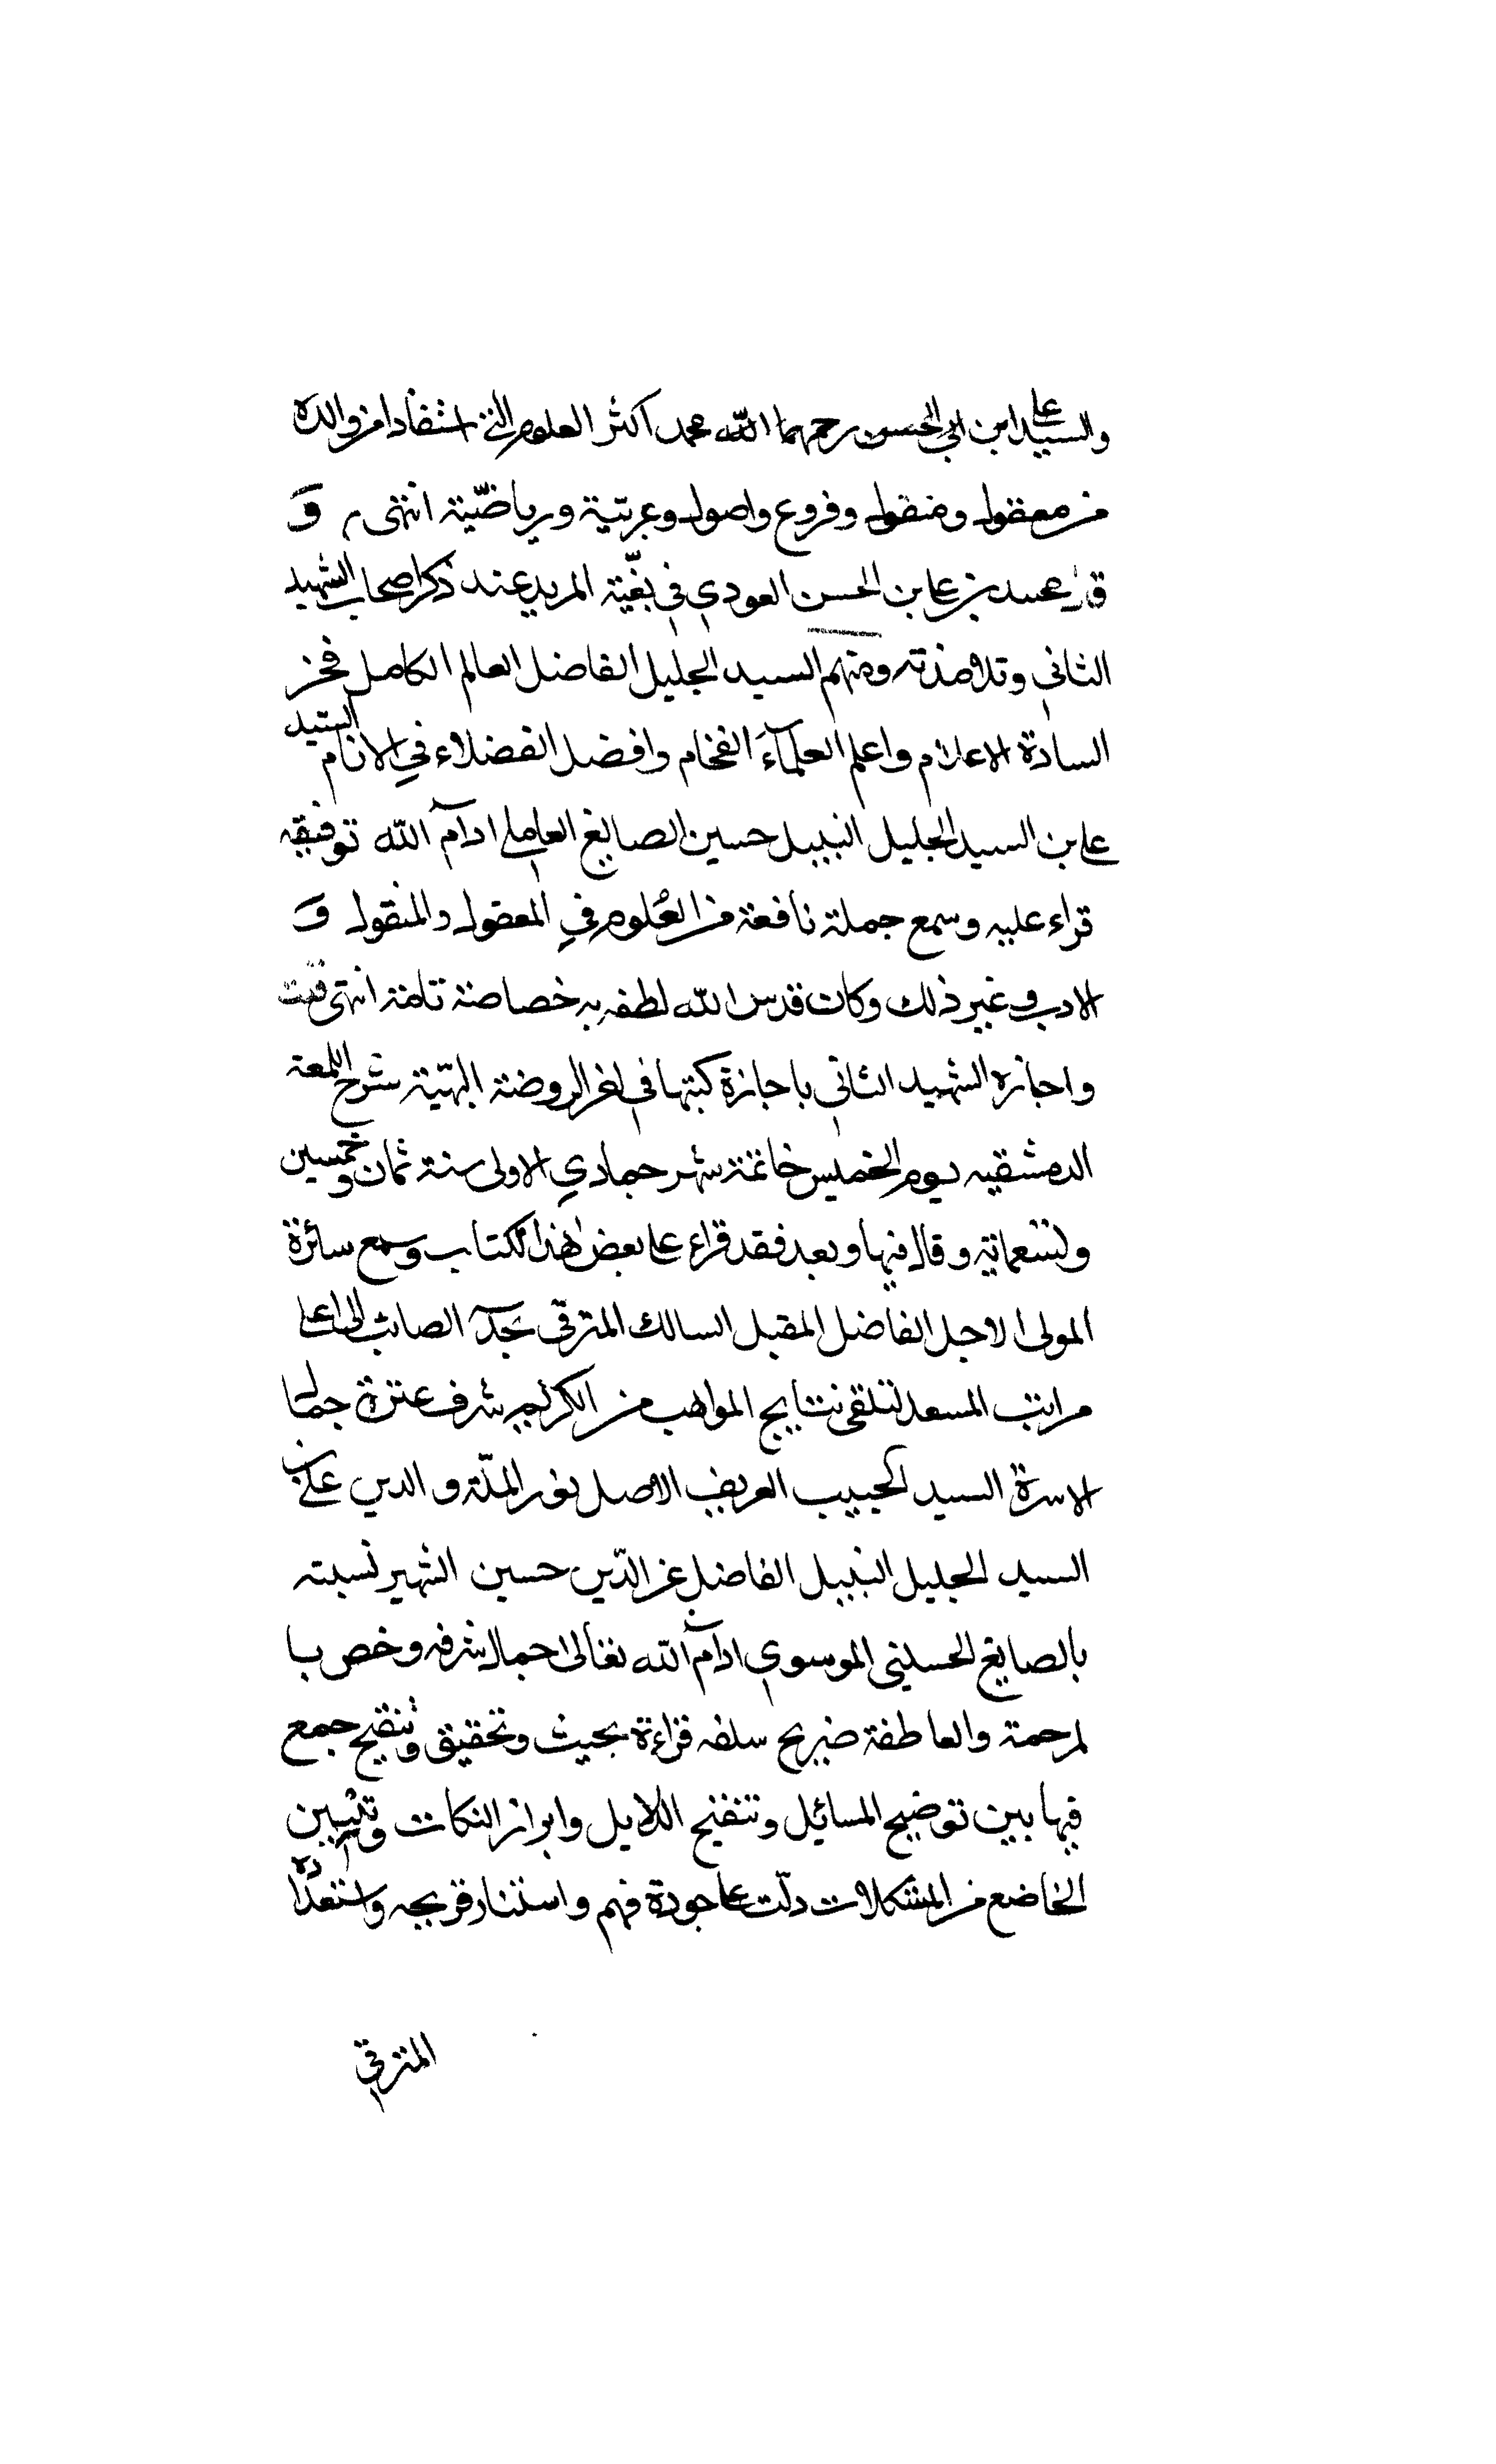 والسيد علي ابن ابي الحسن رحمهما الله محمد اكثر العلوم التي استفادا من والده
من معقول ومنقول وفروع واصول وعربيّة ورياضيّة انتهى م و
قال محمد بن علي بن الحسن العودي في بغيّة المريد عند ذكر اصحاب الشهيد
الثاني وتلامذته ومنهم السيد الجليل الفاضل العالم الكامل فخر
السادة الاعلام واعلم العلمآء الفخام وافضل الفضلاء في الانام السيد
علي بن السيد الجليل النبيل حسين الصايغ العاملي ادآم الله توفيقه
قراء عليه وسمع جملة نافعة من العُلوم في المعقول والمنقول و
الادب و غير ذلك وكان قدس الله لطفه به خصاصة تامة انتهى قلت
واجازه الشهيد الثاني باجازة كتبها في اخر الروضة البهيّة شرح اللمعة
الدمشقيه يوم الخميس خاتمة شهر جمادي الاولى سنة ثمان وخمسين
وتسعمائة وقال فيها وبعد فقد قراء على بعض هذا الكتاب وسمع سائرة
المولى الاجل الفاضل المقبل السالك المترقى بجدّه الصائب الى اعلى
مراتب المسعد لتلقى نتايج المواهب من الكريم شرف عترة جمال
الاسرة السيد الحبيب العريف الاصل نور الملّة و الدين علي بن
السيد الجليل النبيل الفاضل عز الدّين حسين الشهير نسبته
بالصايغ الحسيني الموسوي ادآم الله تعالى اجمال شرفه وخص با
لرحمة والعاطفة ضريح سلفه قراءة بحيث وتحقيق وتنقيح جمع
فيها بين توضيح المسائيل وتنقيح اللايل وابراز النكات وتبيين
الخاضع من المشكلات دلّت على جودة فهم واستنار قريحه واستعداده
المترقي